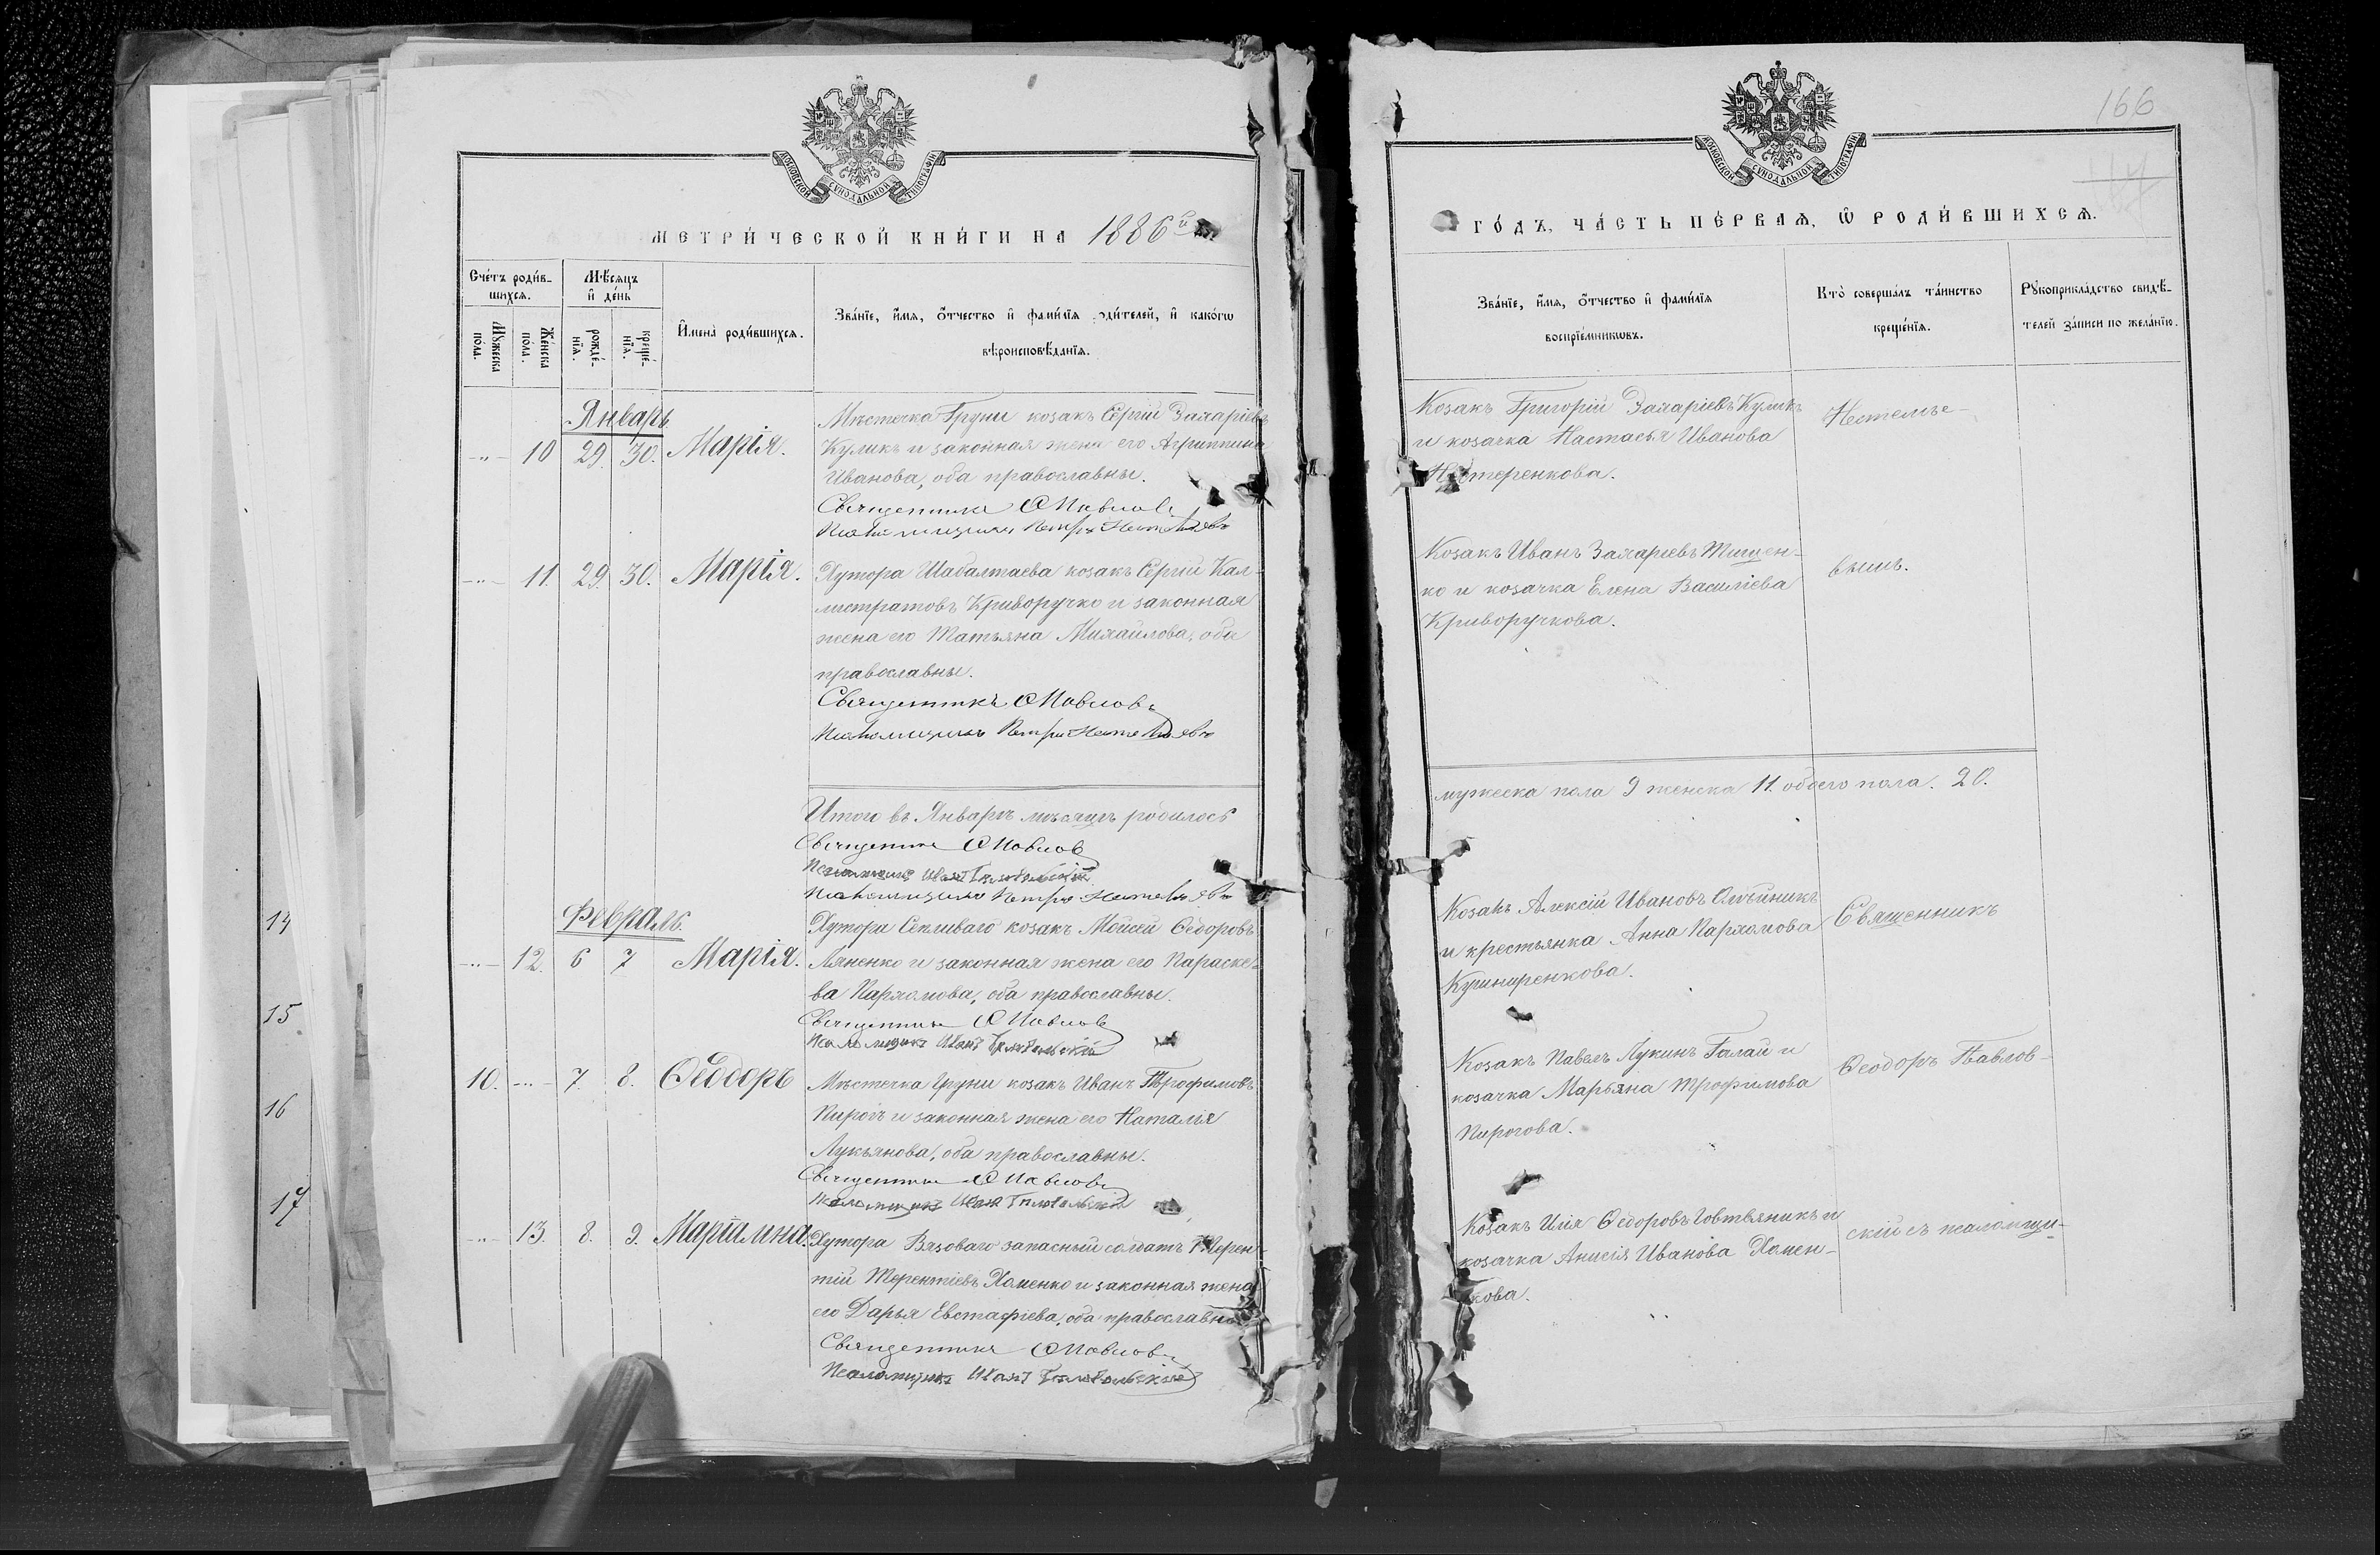 МОСКОВСКОЙ СѴНОДАЛЬНОЙ ТИПОГРАФІИ
МЕТРИ́ЧЕСКОЙ КНИ́ГИ НА 1886й
Сче́тъ роди́в-
шихсѧ.
Мѣ́сѧцъ
и҆ де́нь
Мꙋ́жеска
по́ла.
Же́нска
по́ла.
рожде́-
нїѧ.
креще́-
нїѧ.
И҆мена̀ роди́вшихсѧ.
Зва́нїе, и҆́мѧ, ѻ҆́тчество и҆ фами́лїѧ роди́телей, и҆ како́гѡ
вѣроисповѣ́данїѧ.
Январь
10 29. 30. Марія.
Мѣстечка Груни козакъ Сергій Захаріевъ
Куликъ и законная жена его Агриппина
Иванова, оба православны.
Священникъ Ѳ Павлов
Псаломщикъ Петръ
11. 29. 30. Марія.
Хутора Шабалтаева козакъ Сергій Кал-
листратовъ Криворучко и законная
жена его Татьяна Михайлова, оба
православны.
Священникъ Ѳ Павлов
Псаломщикъ Петръ
Итого въ Январѣ мѣсяцѣ родилось
Священникъ Ѳ Павлов
Псаломщикъ Иванъ
Псаломщикъ Петръ
Февраль.
12. 6 7 Марія.
Хутора Сепливаго козакъ Мойсей Ѳедоровъ
Ляненко и законная жена его Параске-
ва Пархомова, оба православны.
Священникъ Ѳ Павлов
Псаломщикъ Иванъ
10. 7. 8. Ѳеодоръ
Мѣстечка Груни козакъ Иванъ Трофимовъ
Пирогъ и законная жена его Наталья
Лукьянова, оба православны.
Священникъ Ѳ Павлов
Псаломщикъ Иванъ
13. 8. 9. Маріамна.
Хутора Вязоваго запасный солдатъ Терен-
тій Терентіевъ Хоменко и законная жена
его Дарья Евстафіева, оба православны
Священникъ Ѳ Павлов
Псаломщикъ Иванъ
14
15
16
17
166
МОСКОВСКОЙ СѴНОДАЛЬНОЙ ТИПОГРАФІИ
ГО́ДЪ, ЧА́СТЬ ПЕ́РВАѦ, Ѡ҆ РОДИ́ВШИХСѦ.
Зва́нїе, и҆́мѧ, ѻ҆́тчество и҆ фами́лїѧ
воспрїе́мникѡвъ.
Кто̀ соверша́лъ та́инство
креще́нїѧ.
Рꙋкоприкла́дство свидѣ́-
телей за́писи по жела́нїю.
Козакъ Григорій Захаріевъ Куликъ
и козачка Настасья Иванова
Нестеренкова.
Козакъ Иванъ Захаріевъ Тищен-
ко и козачка Елена Василіева
Криворучкова.
вымъ.
мужеска пола 9 женска 11. обоего пола. 20.
Козакъ Алексій Ивановъ Олѣйникъ
и крестьянка Анна Пархомова
Священникъ
Козакъ Павелъ Лукинъ Галай и
козачка Марьяна Трофимова
Пирогова.
Ѳеодоръ Павлов-
Козакъ Илія Ѳедоровъ Говтвяникъ и
козачка Анисія Иванова Хомен-
кова.
скій съ псаломщи-